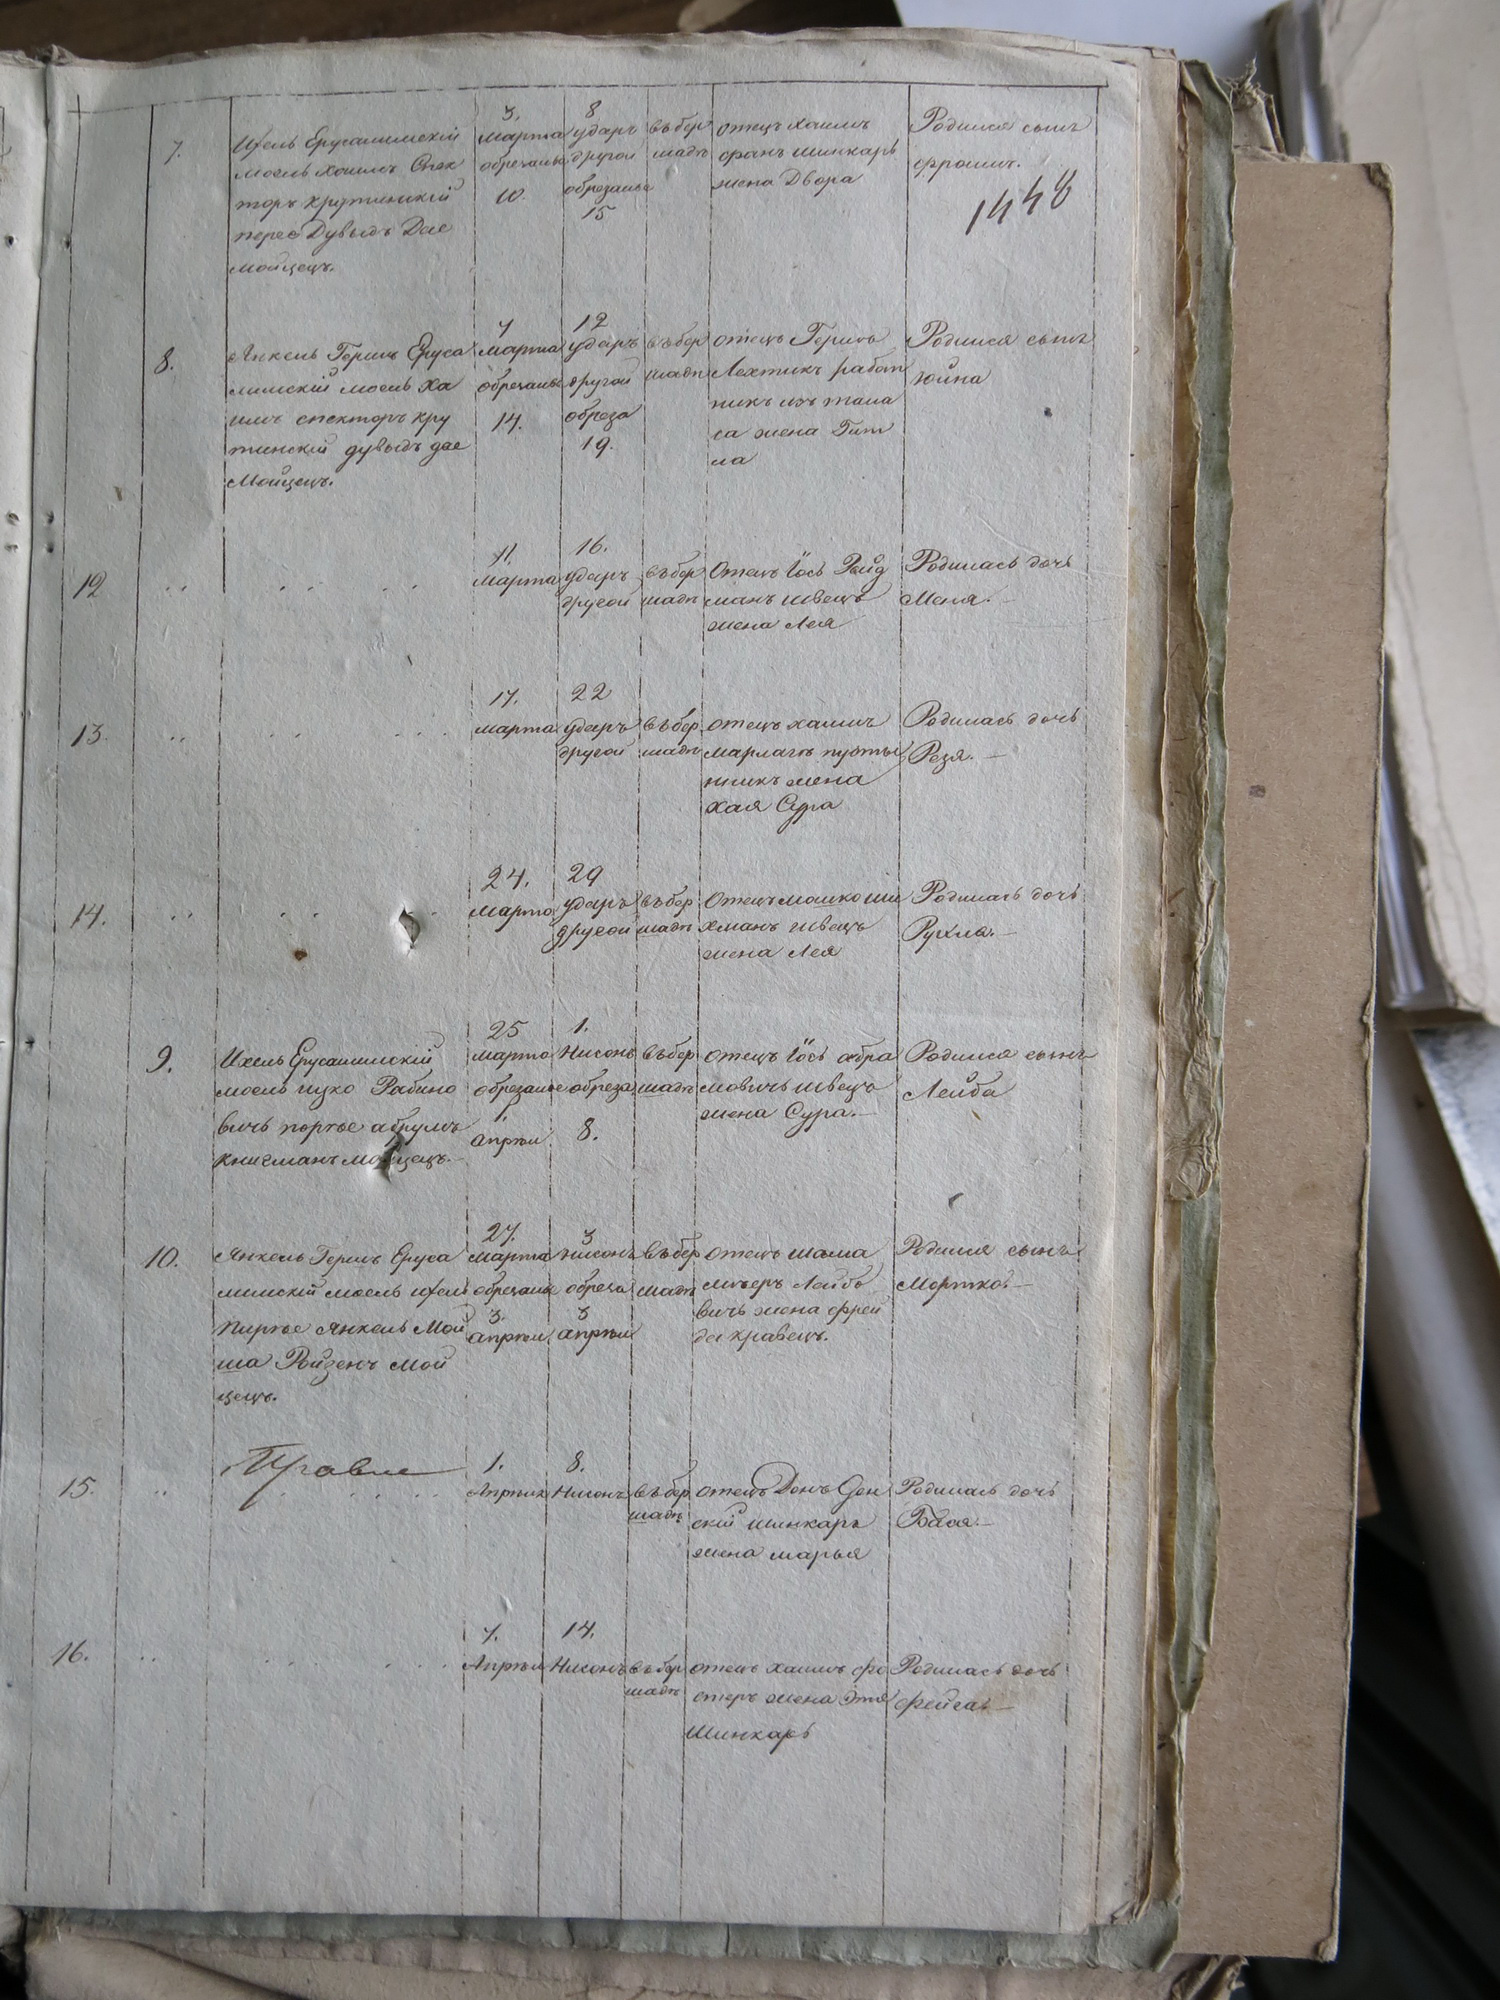 7.
Ихель Ерусалимскій
моель хаимъ Спек
торъ крутинскій
Дувыдъ Дае
мойцецъ.
3.
марта
обрезанье
10.
8
ударъ
другой
обрезанье
15
въ бер
шадѣ
отецъ хаимъ
шинкарь
жена Двора
Родился сынъ
фроимъ.
1448
8.
Янкель Гершъ Еруса
лимскій моель ха
имъ спекторъ кру
тинскій дувыдъ дае
Мойцецъ.
7
марта
обрезанье
14.
12
ударъ
другой
обреза
19.
въ бер
шадѣ
отецъ Гершъ
работ
никъ
жена Гит
ла
Родился сынъ
юйна
12
11.
марта
16.
ударъ
другой
въ бер
шадѣ
Отецъ Іось
манъ швецъ
жена Лея
Родилась дочь
Меня.
13.
17.
марта
22
ударъ
другой
въ бер
шадѣ
отецъ хаимъ
жена
хая Сура
Родилась дочь
Резя.
14.
24.
марта
29
ударъ
другой
въ бер
шадѣ
Отецъ мошко ши
хманъ швецъ
жена Лея
Родилась дочь
Рухля.
9.
Ихель Ерусалимскій
моель Рабино
вичъ абрумъ
мойцецъ.
25
марта
обрезанье
1
апрѣл
1.
Нисонъ
обреза
8.
въ бер
шадѣ
отецъ Іось абра
мовичъ швецъ
жена Сура.
Родился сынъ
Лейба
10.
Янкель Гершъ Еруса
лимскій моель ихель
Янкель Мой
ша Ройзенъ мой
цецъ.
27.
марта
обрезанье
3.
апрѣл
3
нисонъ
обреза
3
апрѣл
въ бер
шадѣ
отецъ шама
Лейбо
вичъ жена фрей
да кравецъ.
Родился сынъ
Мортко.
15.
1.
Апрѣля
8.
Нисонъ
въ бер
шадѣ
отецъ Донъ Дон
скій шинкарь
жена марья
Родилась дочь
Бася.
16.
7.
Апрѣля
14.
Нисонъ
въ бер
шадѣ
отецъ хаимъ фо
стеръ жена Этя
Шинкарь
Родилась дочь
фейга.